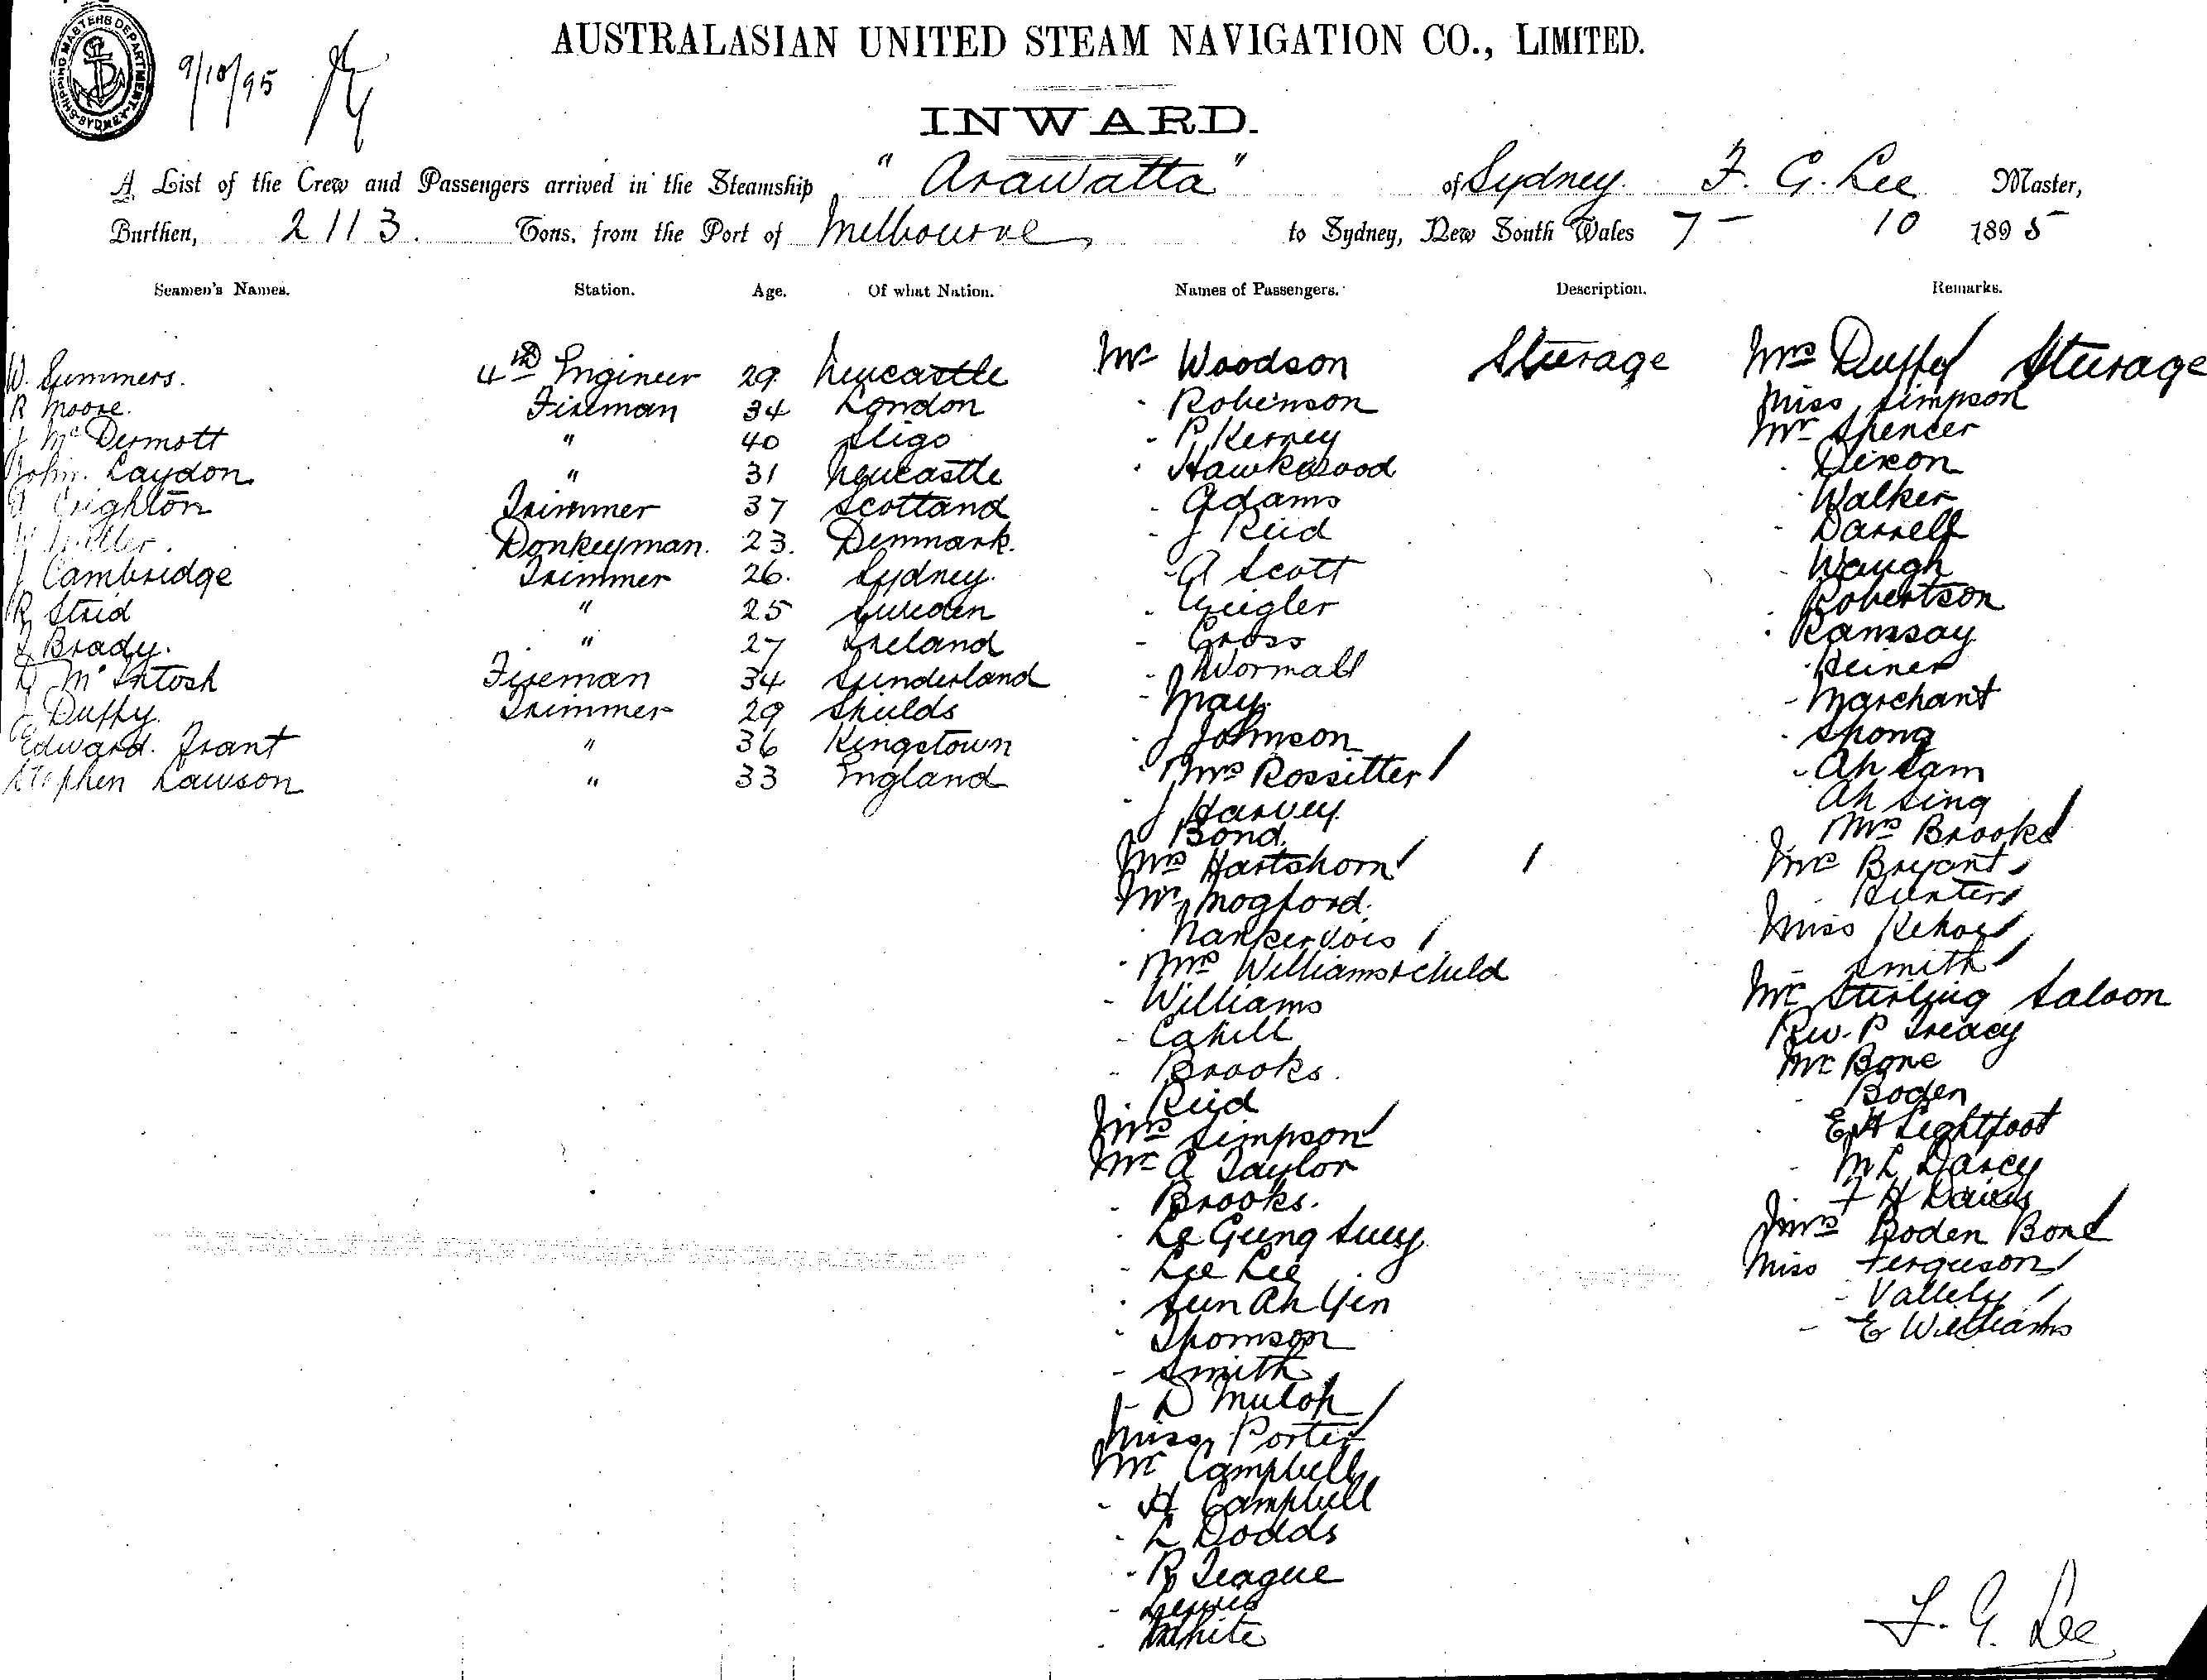 SHIPPING MASTERS DEPARTMENT SYDNEY
9/10/95
AUSTRALASIAN UNITED STEAM NAVIGATION CO., LIMITED.
INWARD.
A List of the Crew and Passengers arrived in the Steamship "Arawatta" of Sydney. F. G. Lee Master,
Burthen, 2113. Tons, from the Port of Melbourne, to Sydney, New South Wales 7 - 10 1895
Seamen's Names. Station. Age. Of what Nation. Names of Passengers. Description. Remarks.
W. Summers. 4th Engineer 29. Newcastle
R Moore. Fireman 34 London
J McDermott " 40 Sligo
John. Laydon. " 31 Newcastle
Crighton Trimmer 37 Scotland
W Donkeyman. 23. Denmark.
J Cambridge Trimmer 26. Sydney.
R Strid " 25 Sweden
Brady. " 27 Ireland
D McIntosh Fireman 34 Sunderland
J Duffy. Trimmer 29 Shields
Edward. Grant " 36 Kingstown
Stephen Lawson " 33 England
Mr Woodson Steerage
- Robinson
- P Kerney
- Hawkswood
- Adams
- J Reid
- A Scott
- Geigler
- Cross
- J Wormald
- May.
- J Johnson
- Mrs Rossitter /
- J Harvey.
Bond.
Mrs Hartshorn / /
Mr Mogford.
- Nankervois /
- Mrs Williams & child
- Williams
- Cahill
- Brooks.
- Reid
Mrs Simpson /
Mr A Taylor
- Brooks.
- Le Gung Suey.
- Lee Lee
- Sun Ah Yin
- Thomson
- Smith
- D Muloh
Miss Porter /
Mr Campbell
- H Campbell
- L Dodds
- R Teague
- Lewis
- White
Mrs Duffy / Steerage
Miss Simpson
Mr Spencer
- Dixon
- Walker
- Darrell
- Waugh
- Robertson
- Ramsay
- Heiner
- Marchant
- Spong
- Ah Sam
Ah Sing
- Mrs Brooks /
Mrs Bryant /
- Hunter /
Miss Kehoe /
Smith /
Mr Stirling Saloon
Rev. P Treacy
Mr Bone
- Boden
- E H Lightfoot
- M L Darcy
- F H Davis
Mrs Boden Bone /
Miss Ferguson /
- Vallely /
- E Williams
F. G. Lee